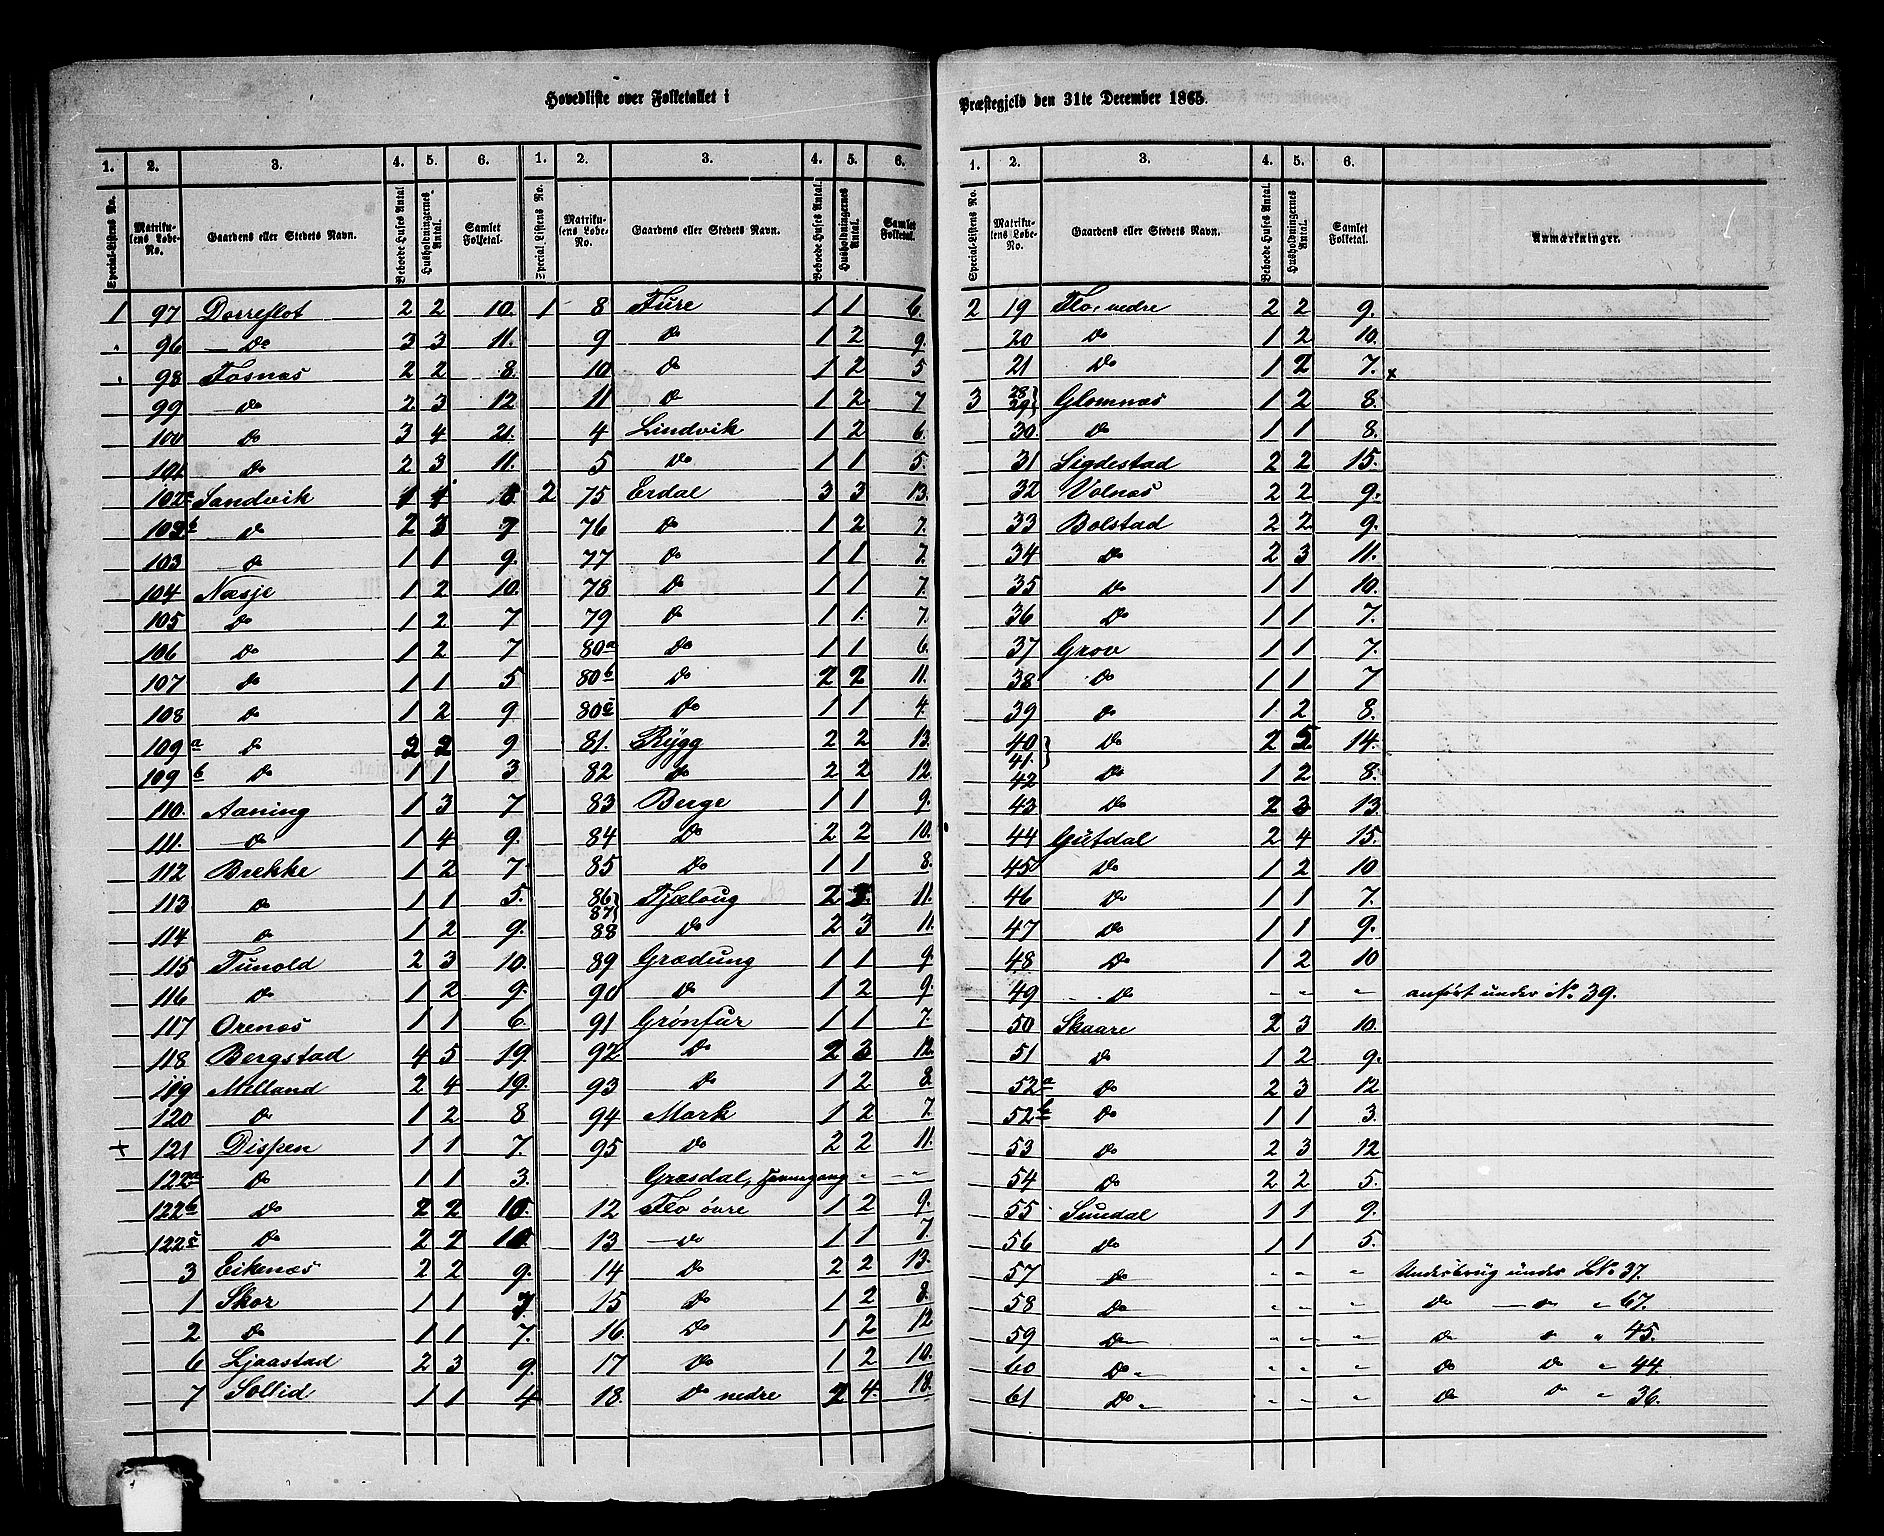 Hovedliste over Folketallet i
Præstegjeld den 31te December 1865.
1. 2. 3. 4. 5. 6. 1. 2. 3. 4. 5. 6.
Special-Listens No. Matrikulens Løbe-No. Gaardens eller Stedets Navn. Beboede Huses Antal Husholdningernes Antal. Samlet Folketal. Special Listens No. Matrikulens Løbe-No. Gaardens eller Stedets Navn. Beboede Huses Antal. Husholdningernes Antal. Samlet Folketal.
1 97 Dorreflot 2 2 10. 1 8 Fure 1 1 6.
96 Do 3 3 11. 9 Do 1 2 9.
98 Fosnas 2 2 8. 10 Do 1 2 5
99 Do 2 3 12 11 Do 1 2 7
100 Do 3 4 21. 4 Lindvik 1 2 6.
101 Do 2 3 11. 5 Do 1 1 5.
102a Sandvik 1 1 8 2 75 Erdal 3 3 13.
102b Do 2 3 7 76 Do 1 2 7.
103 Do 1 1 9. 77 Do 1 1 7.
104 Næsje 1 2 10. 78 Do 1 1 7.
105 Do 1 2 7 79 Do 1 1. 7.
106 Do 1 2 7 80a Do 1 1 6.
107 Do 1 1 5 80b Do 2 2 11.
108 Do 1 2 9 80c Do 1 1 4.
109a Do 2 2 9 81. Rygg 2 2 13.
109b Do 1 1 3 82 Do 2 2 12.
110. Aaning 1 3 7 83 Berge 1 1 9.
111. Do 1 4 9. 84 Do 2 2 10.
112 Brekke 1 2 7 85 Do 1 1 8.
113 Do 1 1 5. 86 87 Fjeloug 2 11.
114 Do 1 2 9. 88 Do 2 3 11.
115 Tunold 2 3 10. 89 Grædung 1 1 9
116 Do 1 2 9. 90 Do 1 2 9.
117 Orenes 1 1 6. 91 Grønfur 1 1 7.
118 Bergstad 4 5 19. 92 Do 2 3 12.
119 Milland 2 4 19. 93 Do 1 2 8
120 Do 1 2 8 94 Mork 1 2 7
+ 121 Dispen 1 1 7. 95 Do 2 2 11.
122a Do 1 1 3. Græsdal, Havnegang " " "
122b Do 2 2 10. 12 Flo øvre 1 2 9.
122c Do 2 2 10. 13 Do 1 1 7.
3 Eikenæs 2 2 9. 14 Do 2 2 13.
1 Skor 1 1 7. 15 Do 1 2 8.
2 Do 1 1 7. 16. Do 1 2 12
6 Ljaastad 2 3 9. 17 Do 1 2 10.
7 Sollid 1 1 4 18. Do nedre 2 4. 18.
1. 2. 3. 4. 5. 6.
Special-Listens No. Matrikulens Løbe-No. Gaardens eller Stedets Navn. Beboede Huses Antal. Husholdningernes Antal. Samlet Folketal. Anmærkninger.
2 19 Flo, nedre 2 2 9.
20 Do 1 2 10.
21 Do 1 2 7. x
3 28 29 Glomnæs 1 2 8.
30. Do 1 1 8.
31 Sigdestad 2 2 15.
32 Volnæs 2 2 9.
33 Bolstad 2 2 9.
34 Do 2 3 11.
35 Do 1 1 10.
36 Do 1 1 7.
37 Grov 1 1 7.
38 Do 1 1 7
39 Do 1 2 8.
40 41. Do 2 5 14.
42 Do 1 2 8.
43 Do 2 3 13.
44 Gutdal 2 4 15.
45 Do 1 2 10
46 Do 1 1 7.
47 Do 1 1 9.
48 Do 1 2 10
49 Do " " " anført under No. 39.
50 Skaare 2 3 10.
51 Do 1 2 9.
52a Do 2 3 12
52b Do 1 1 3.
53 Do 2 3 12
54 Do 2 2 5.
55 Sundal 1 1 9.
56 Do 1 1 5.
57 Do " " " Underbrug under L.No 37.
58 Do " " " Do Do " 67.
59 Do " " " Do Do " 45.
60 Do " " " Do Do " 44.
61 Do " " " Do Do " 36.